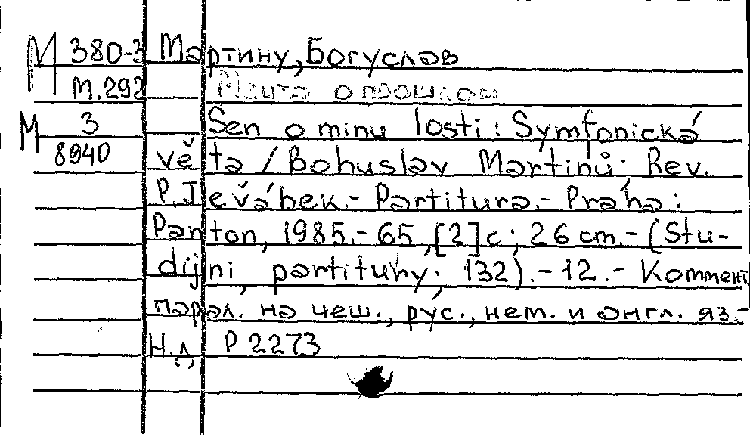 М 380-3 Мартину, Богуслав
М.292 Мечта о прошлом
М 3 Sen o minu losti: Symfonická
8940 vě ta / Bohuslav Martinů; Rev.
P. Jeřábek.- Partitura.- Praha:
Panton, 1985.- 65, [2] с; 26 cm.- (Stu-
dijni partitury; 132).- 12.- Коммент
парал. на чеш., рус., нем. и англ. яз.-
Н.Д. Р 2273